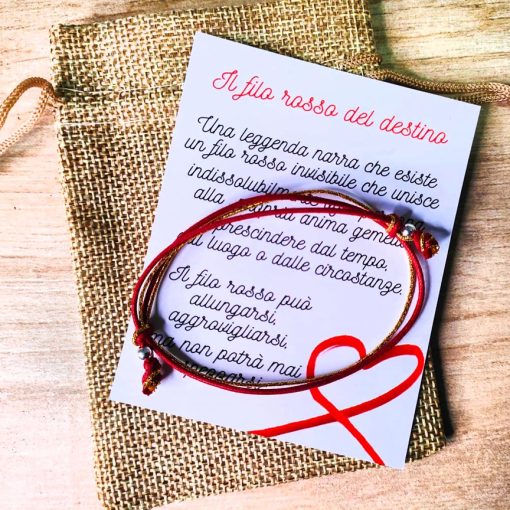 Il filo rosso del destino
Una leggenda narra che esiste
un filo rosso invisibile che unisce
alla anima
prescindere dal tempo,
luogo o dalle circostanze.
Il filo rosso può
allungarsi,
aggrovigliarsi,
ma non potrà mai